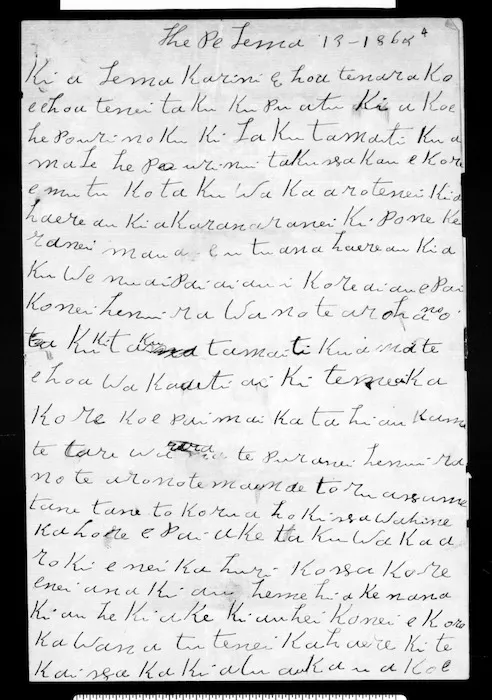 The Pe Tema 13-1864
Ki a Tema Karini E hoa tenara Ko
e ehoa tenei taku Kupu atu Ki a Koe
he Pouri no Ku Ki Ta Ku tamaiti Kua
mate he Pouri nui taKu ssa Kau e Kore
e mutu Ko ta Ku Wa Ka aro tenei Kia
haere au Ki a Karanaranei Ki Pone Ke
ranei mana e mutu ana haere au Kia
Ku We nuai Pai ai au i Kore ai au e Pai
Konei he nui ra Wa no te aroha no
ta Ku Ki ta Ku tamaiti Kua mate
e hoa Wa Ka ati ai Ki te mea Ka
Kore Koe e Pai mai Ka ta hi au Kama
te tare te Pu ranei he nui ra
no te aro note
tane tane to Korua ho Ki ssa Wahine
Ka ho e Pai a Ke ta Ku Wa Ka a
ro Ki e nei Ka huri Kossa Ko re
enei ana Ki au he me hi a Ke nana
Ki au he Ki a Ke Ki au hei Konei e Kore
Ka Wana tu tenei Ka haere Ki te
Kai ssa Ka Ki atu au Ka ua Koe